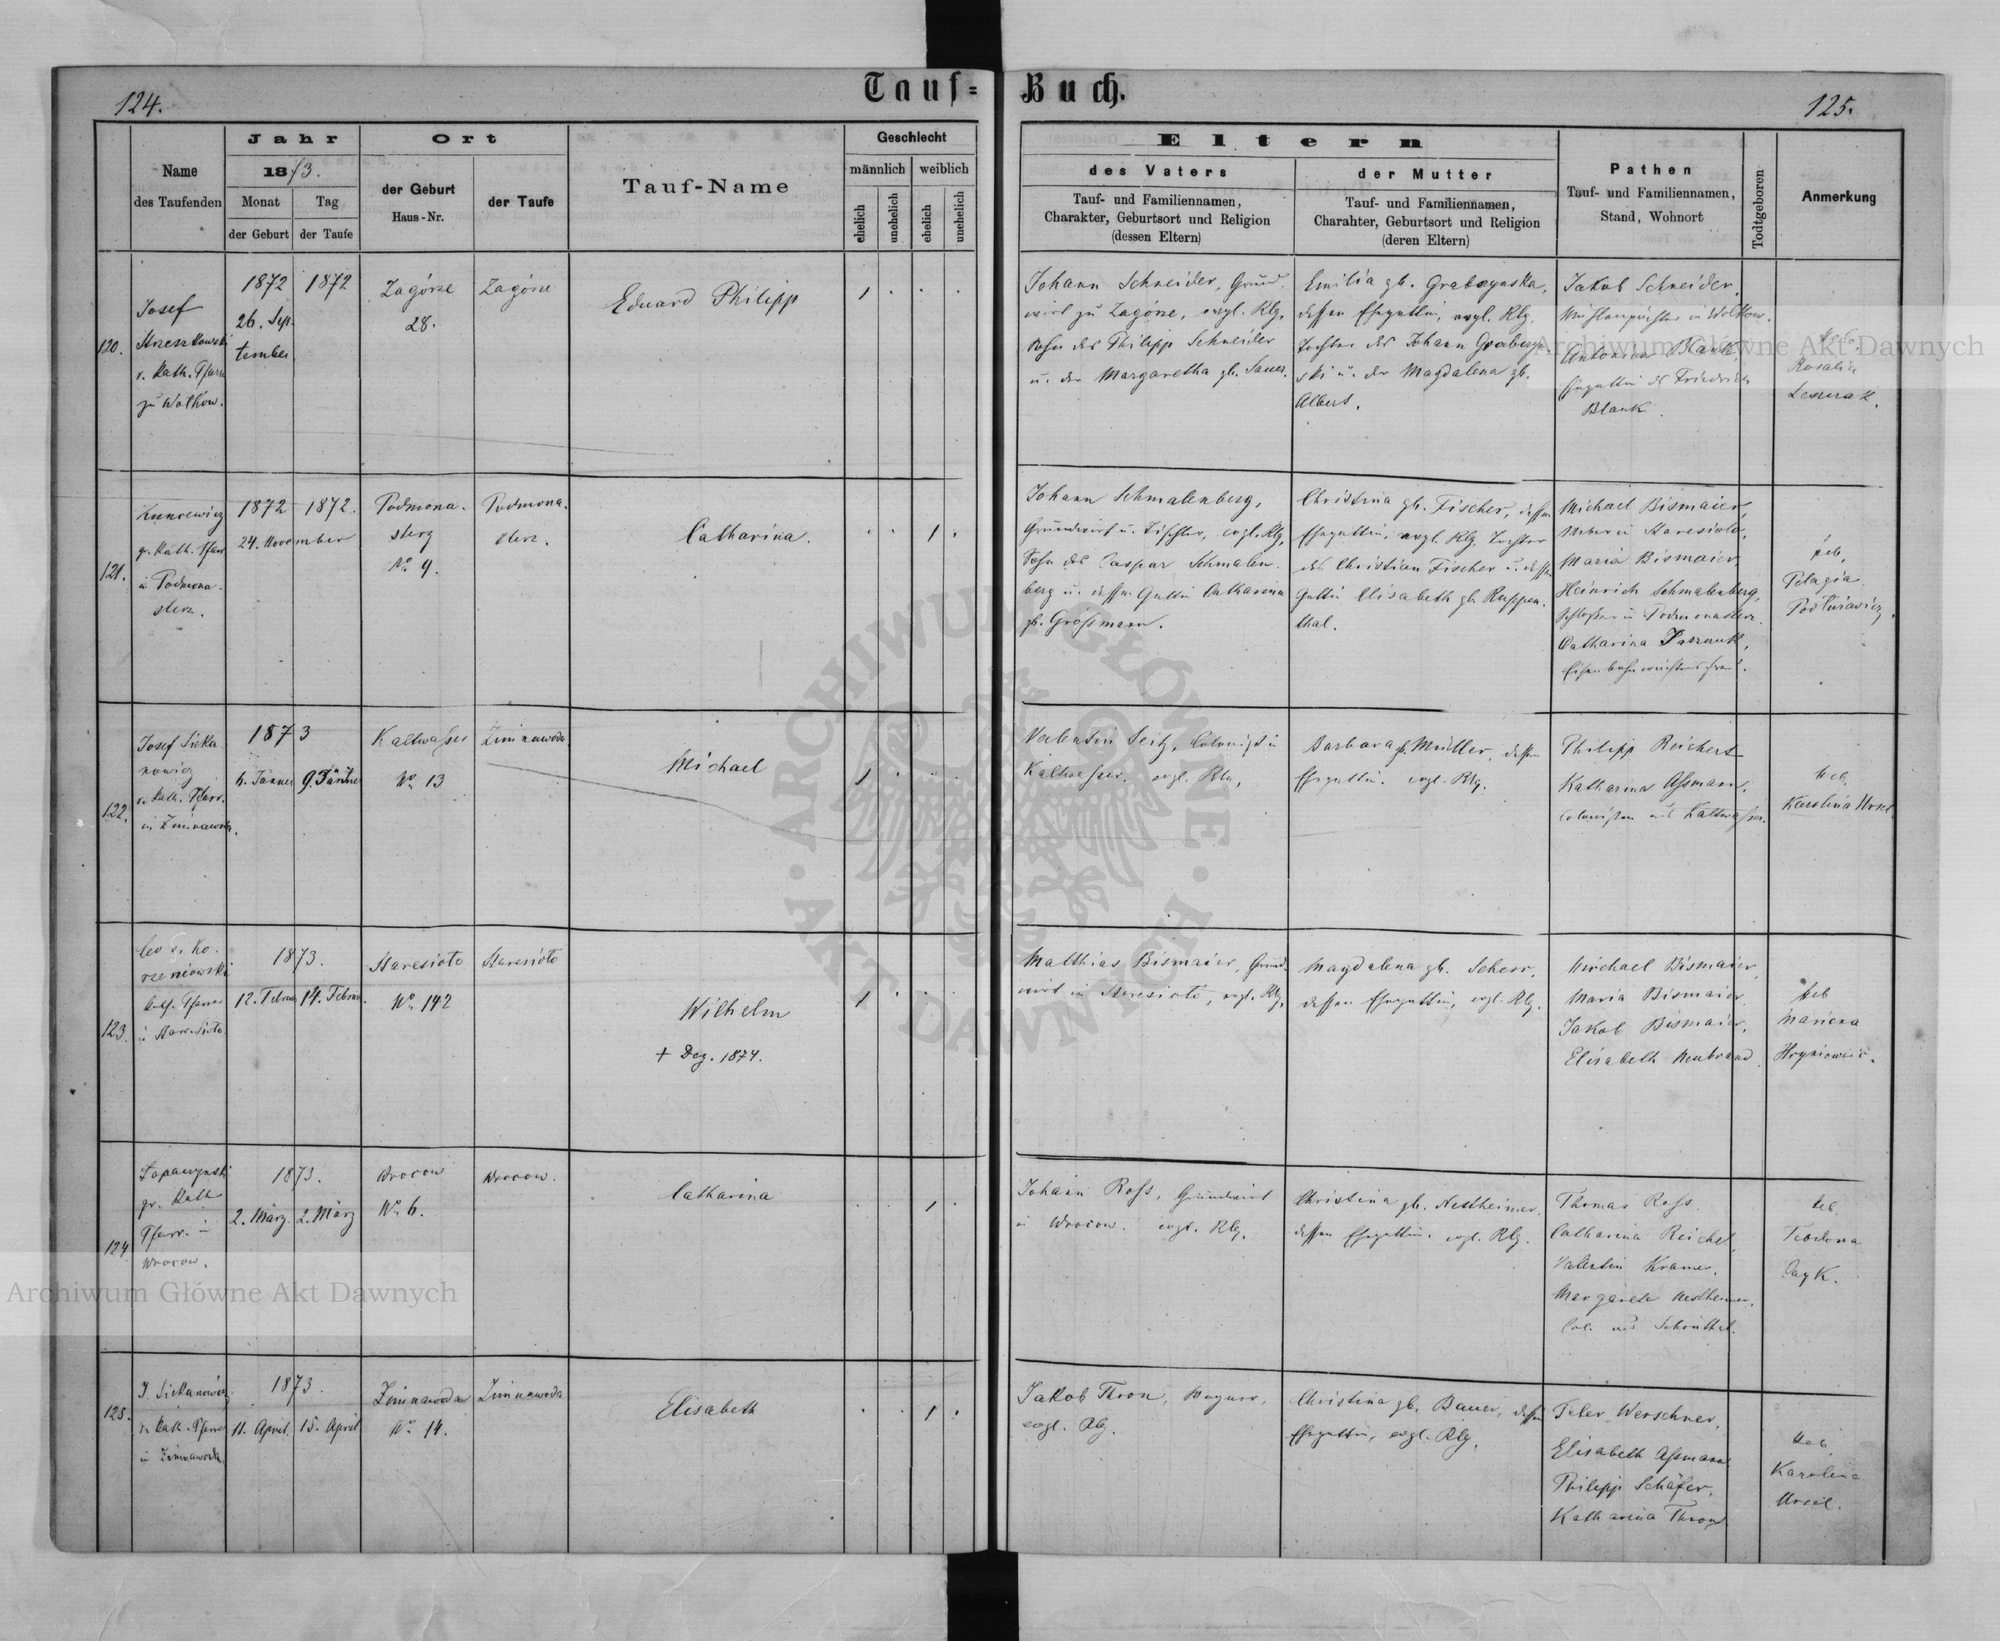 124.
Tauf-Buch.
125.
Name
des Taufenden
Jahr
1873.
Monat
Tag
der Geburt
der Taufe
Ort
der Geburt
Haus-Nr.
der Taufe
Tauf-Name
Geschlecht
männlich
weiblich
ehelich
unehelich
ehelich
unehelich
Eltern
des Vaters
Tauf- und Familiennamen,
Charakter, Geburtsort und Religion
(dessen Eltern)
der Mutter
Tauf- und Familiennamen,
Charahter, Geburtsort und Religion
(deren Eltern)
Pathen
Tauf- und Familiennamen,
Stand, Wohnort
Todtgeboren
Anmerkung
120.
Josef
r. kath. Pfarrer
zu Wolkow.
1872
26. Sep-
tember
1872
Zagórze
28.
Zagórze
Eduard Philipp
1
Johann Schneider, Grund-
wirt zu Zagórze, evgl. Rlg.
Sohn des Philipp Schneider
u. der Margaretha gb. Sauer.
Emilia gb. Grabzynska,
dessen Ehegattin, evgl. Rlg.
Tochter des Johann
ski u. der Magdalena gb.
Albert.
Jakob Schneider,
in Wolkow.
Antonia Blank
Ehegattin des Friedrich
Blank.
Heb.
Rosalia
121.
Kuncewicz
gr. kath. Pfarr
in Podmona-
sterz.
1872
1872.
24. November
Podmona-
sterz
No 9.
Podmona-
sterz.
Catharina.
1
Johann Schmalenberg,
Grundwirt u. Tischler, evgl. Rlg.
Sohn des Caspar Schmalen-
berg u. dessen Gattin Catharina
gb. Großmann.
Christina gb. Fischer, dessen
Ehegattin, evgl. Rlg. Tochter
des Christian Fischer u. dessen
Gattin Elisabeth gb. Ruppen-
thal.
Michael Bismaier,
Weber in Staresioło,
Maria Bismaier,
Heinrich Schmalenberg,
in Podmonasterz.
Catharina
Heb.
Pelagia
122.
Josef Sieka-
nowicz
r. kath. Pfarr.
in Zimnawoda.
1873
6. Jänner
9. Jänner
Kaltwasser
No 13
Zimnawoda
Michael
1
Valentin Seitz, Colonist in
Kaltwasser. evgl. Rlg.
Barbara gb. Müller, dessen
Ehegattin. evgl. Rlg.
Philipp Reichert
Katharina Aßmann,
Colonisten aus Kaltwasser.
Heb.
Karolina Ursel.
123.
Leo v. Ko-
rzeniowski
Pfarrer
in Staresioło
1873.
12. Februar
14. Februar.
Staresioło
No 142
Staresioło
Wilhelm
+ Dez. 1874.
1
Matthias Bismaier, Grund-
wirt in Staresioło, evgl. Rlg.
Magdalena gb. Scherr,
dessen Ehegattin, evgl. Rlg.
Michael Bismaier,
Maria Bismaier
Jakob Bismaier,
Elisabeth Neubrand
Heb
Mariena
124.
gr. kath.
Pfarr. in
Wrocow.
1873.
2. März.
2. März
Wrocow
No 6.
Wrocow.
Catharina
1
Johann Roß, Grundwirt
in Wrocow. evgl. Rlg.
Christina gb. Nestheimer,
dessen Ehegattin. evgl. Rlg.
Thomas Roß.
Catharina Reichel,
Valentin Kramer,
Margareta Nestheimer,
Col. aus Schönthal.
Heb.
Teodona
125.
J. Siekanowicz
r. kath. Pfarrer
in Zimnawoda
1873.
11. April.
15. April
Zimnawoda
No 14.
Zimnawoda
Elisabeth
1
Jakob Thron, Wagner,
evgl. Rlg.
Christina gb. Bauer, dessen
Ehegattin, evgl. Rlg.
Peter Werschner,
Elisabeth Aßmann
Philipp Schäfer,
Katharina Thron
Heb.
Karolina
Ursel.
Archiwum Główne Akt Dawnych
Archiwum Główne Akt Dawnych
ARCHIWUM GŁÓWNE AKT DAWNYCH